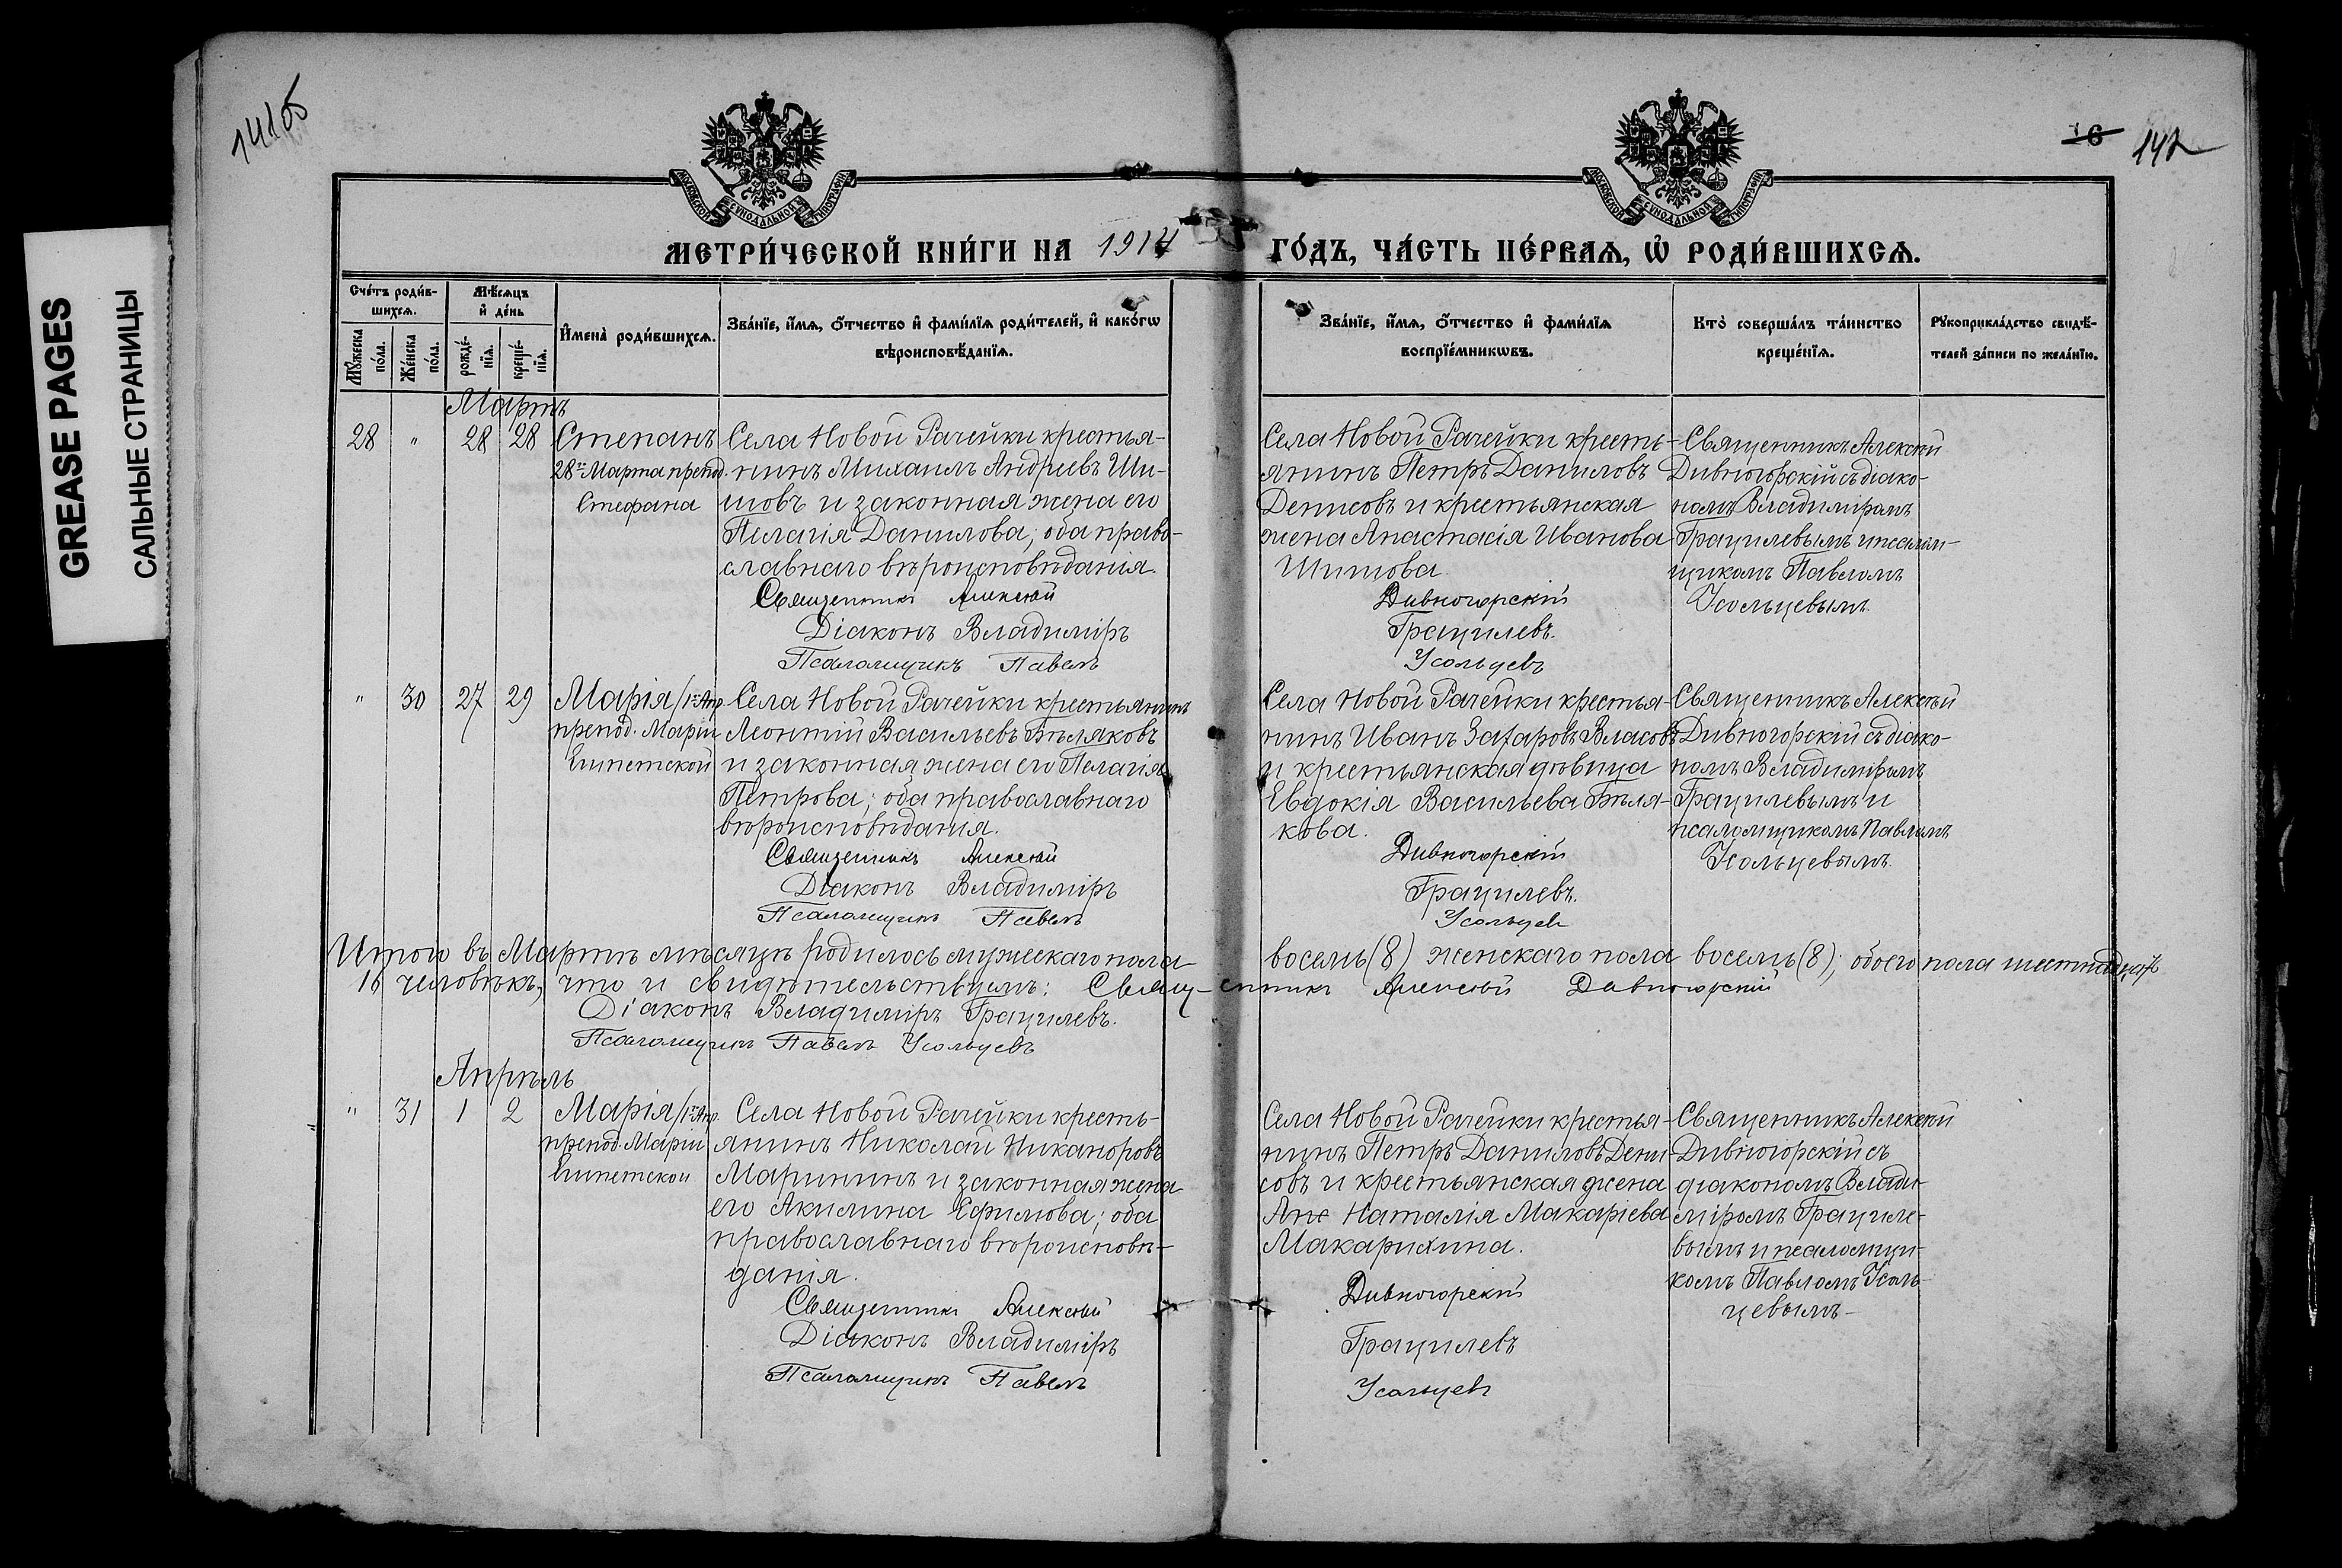 GREASE PAGES
САЛЬНЫЕ СТРАНИЦЫ
141об
МОСКОВСКОЙ СѴНОДАЛЬНОЙ ТИПОГРАФІИ
МОСКОВСКОЙ СѴНОДАЛЬНОЙ ТИПОГРАФІИ
6 142
МЕТРИ́ЧЕСКОЙ КНИ́ГИ НА 1914 ГО́ДЪ, ЧА́СТЬ ПЕ́РВАѦ, Ѡ҆ РОДИ́ВШИХСѦ.
Сче́тъ роди́в-
шихсѧ.
Мꙋ́жеска по́ла.
Же́нска по́ла.
Мѣ́сѧцъ
и҆ де́нь
рожде́-
нїѧ.
креще́-
нїѧ.
И҆мена̀ роди́вшихсѧ.
Зва́нїе, и҆́мѧ, ѻ҆́тчество и҆ фами́лїѧ роди́телей, и҆ како́гѡ
вѣроисповѣ́данїѧ.
Зва́нїе, и҆́мѧ, ѻ҆́тчество и҆ фами́лїѧ
воспрїе́мникѡвъ.
Кто̀ соверша́лъ та́инство
креще́нїѧ.
Рꙋкоприкла́дство свидѣ́-
телей за́писи по жела́нїю.
Мартъ
28 " 28 28
Степанъ
28го Марта препод.
Стефана
Села Новой Рачейки крестья-
нинъ Михаилъ Андреевъ Ши-
шовъ и законная жена его
Пелагія Данилова; оба право-
славнаго вѣроисповѣданія.
Села Новой Рачейки кресть-
янинъ Петръ Даниловъ
Денисовъ и крестьянская
жена Анастасія Иванова
Шишова.
Священникъ Алексѣй
Дивногорскій съ діако-
номъ Владиміромъ
Грацилевымъ и псалом-
щикомъ Павломъ
Усольцевымъ.
Священникъ Алексѣй Дивногорскій
Діаконъ Владиміръ Грацилевъ.
Псаломщикъ Павелъ Усольцевъ
" 30 27 29
Марія /1го Апр.
препод. Маріи
Египетской
Села Новой Рачейки крестьянинъ
Леонтій Васильевъ Бѣляковъ
и законная жена его Пелагія
Петрова; оба православнаго
вѣроисповѣданія.
Села Новой Рачейки крестья-
нинъ Иванъ Захаровъ Власовъ
и крестьянская дѣвица
Евдокія Васильева Бѣля-
кова.
Священникъ Алексѣй
Дивногорскій съ діако-
номъ Владиміромъ
Грацилевымъ и
псаломщикомъ Павломъ
Усольцевымъ.
Священникъ Алексѣй Дивногорскій
Діаконъ Владиміръ Грацилевъ.
Псаломщикъ Павелъ Усольцевъ
Итого въ Мартѣ мѣсяцѣ родилось мужескаго пола восемь (8) женскаго пола восемь (8); обоего пола шестнадцать
16 человѣкъ, что и свидѣтельствуемъ: Священникъ Алексѣй Дивногорскій
Діаконъ Владиміръ Грацилевъ.
Псаломщикъ Павелъ Усольцевъ
Апрѣль
" 31 1 2
Марія /1го Апр.
препод. Маріи
Египетской
Села Новой Рачейки кресть-
янинъ Николай Никаноровъ
Марининъ и законная жена
его Акилина Ефимова; оба
православнаго вѣроисповѣ-
данія.
Села Новой Рачейки крестья-
нинъ Петръ Даниловъ Дени-
совъ и крестьянская жена
Наталія Макаріева
Макарихина.
Священникъ Алексѣй
Дивногорскій съ
діакономъ Влади-
міромъ Грациле-
вымъ и псаломщи-
комъ Павломъ Усоль-
цевымъ-
Священникъ Алексѣй Дивногорскій
Діаконъ Владиміръ Грацилевъ
Псаломщикъ Павелъ Усольцевъ